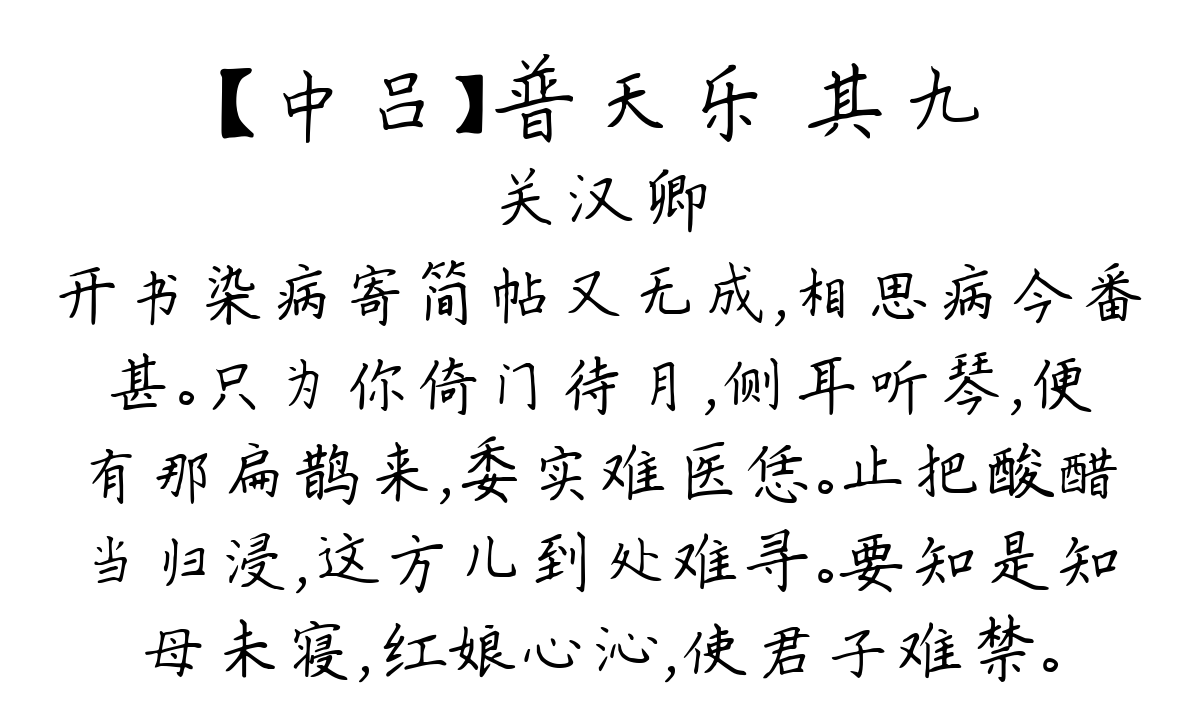 【中吕】普天乐 其九
关汉卿
开书染病寄简帖又无成,相思病今番
甚。只为你倚门待月,侧耳听琴,便
有那扁鹊来,委实难医恁。止把酸醋
当归浸,这方儿到处难寻。要知是知
母未寝,红娘心沁,使君子难禁。